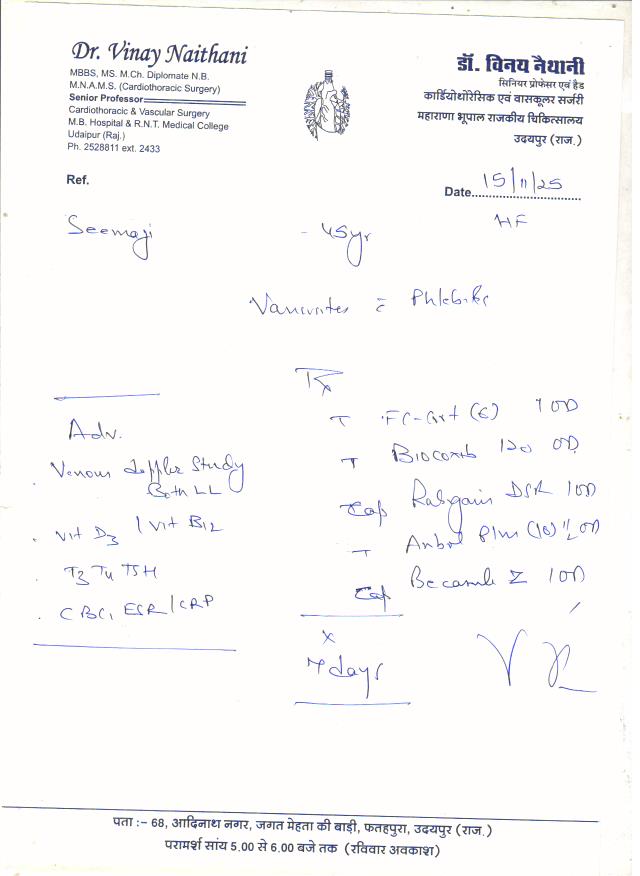 Dr. Vinay Naithani
MBBS, MS. M.Ch. Diplomate N.B.
M.N.A.M.S. (Cardiothoracic Surgery)
Senior Professor
Cardiothoracic & Vascular Surgery
M.B. Hospital & R.N.T. Medical College
Udaipur (Raj.)
Ph. 2528811 ext. 2433
डॉ. विनय नैथानी
सिनियर प्रोफेसर एवं हैड
कार्डियोथोरेसिक एवं वासकूलर सर्जरी
महाराणा भूपाल राजकीय चिकित्सालय
उदयपुर (राज.)
Ref.
Date 15/11/25
Seemaji - 45yr
Phlebitis
Rx
T (E) 1 OD
T 120 OD
Cap DSR 1 OD
T Plus (10) 1/2 OD
Cap Z 1 OD
x
7 days
Adv.
Venous Doppler Study
Both LL
Vit D3 / Vit B12
T3 T4 TSH
CBC, ESR/CRP
पता :– 68, आदिनाथ नगर, जगत मेहता की बाड़ी, फतहपुरा, उदयपुर (राज.)
परामर्श सांय 5.00 से 6.00 बजे तक (रविवार अवकाश)